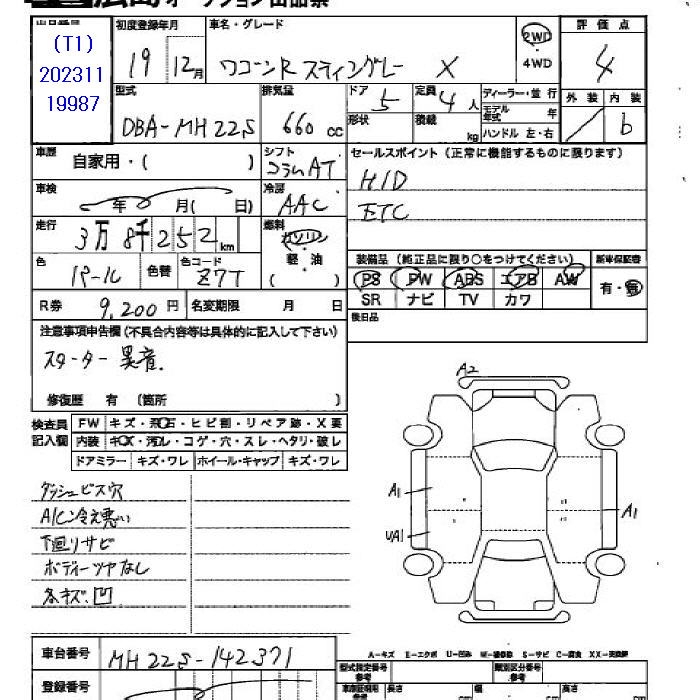 オークション出品票
(T1)
202311
19987
初度登録年月
19年12月
車名・グレード
ワゴンR スティングレー X
2WD
・
4WD
評価点
4
型式
DBA-MH22S
排気量
660 cc
ドア
5
形状
定員
4人
積載
kg
ディーラー・並行
モデル年式 年
ハンドル 左・右
外装
内装
b
車歴
自家用・( )
シフト
コラムAT
セールスポイント(正常に機能するものに限ります)
HID
ETC
車検
年 月( 日)
冷房
AAC
走行
3万8千252km
燃料
ガソリン
軽・油
( )
色
パール
色替
色コード
Z7T
装備品(純正品に限り○をつけてください)
新車保証書
PS PW ABS エアB AW
SR ナビ TV カワ
有・無
R券 9,200円
名変期限 月 日
後日品
注意事項申告欄(不具合内容等は具体的に記入して下さい)
スターター異音.
修復歴 有 (箇所 )
検査員
記入欄
FW キズ・飛石・ヒビ割・リペア跡・X要
内装 キズ・汚レ・コゲ・穴・スレ・ヘタリ・破レ
ドアミラー キズ・ワレ ホイール・キャップ キズ・ワレ
ダッシュビス穴
A/C冷え悪い
下廻りサビ
ボディーツヤなし
各キズ.凹
A2
A1
UA1
A1
A-キズ E-エクボ U-凹み W-補修跡 S-サビ C-腐食 XX-交換済
車台番号
MH22S-142371
登録番号
型式指定番号
参考
類別区分番号
参考
長さ cm
幅 cm
高さ cm